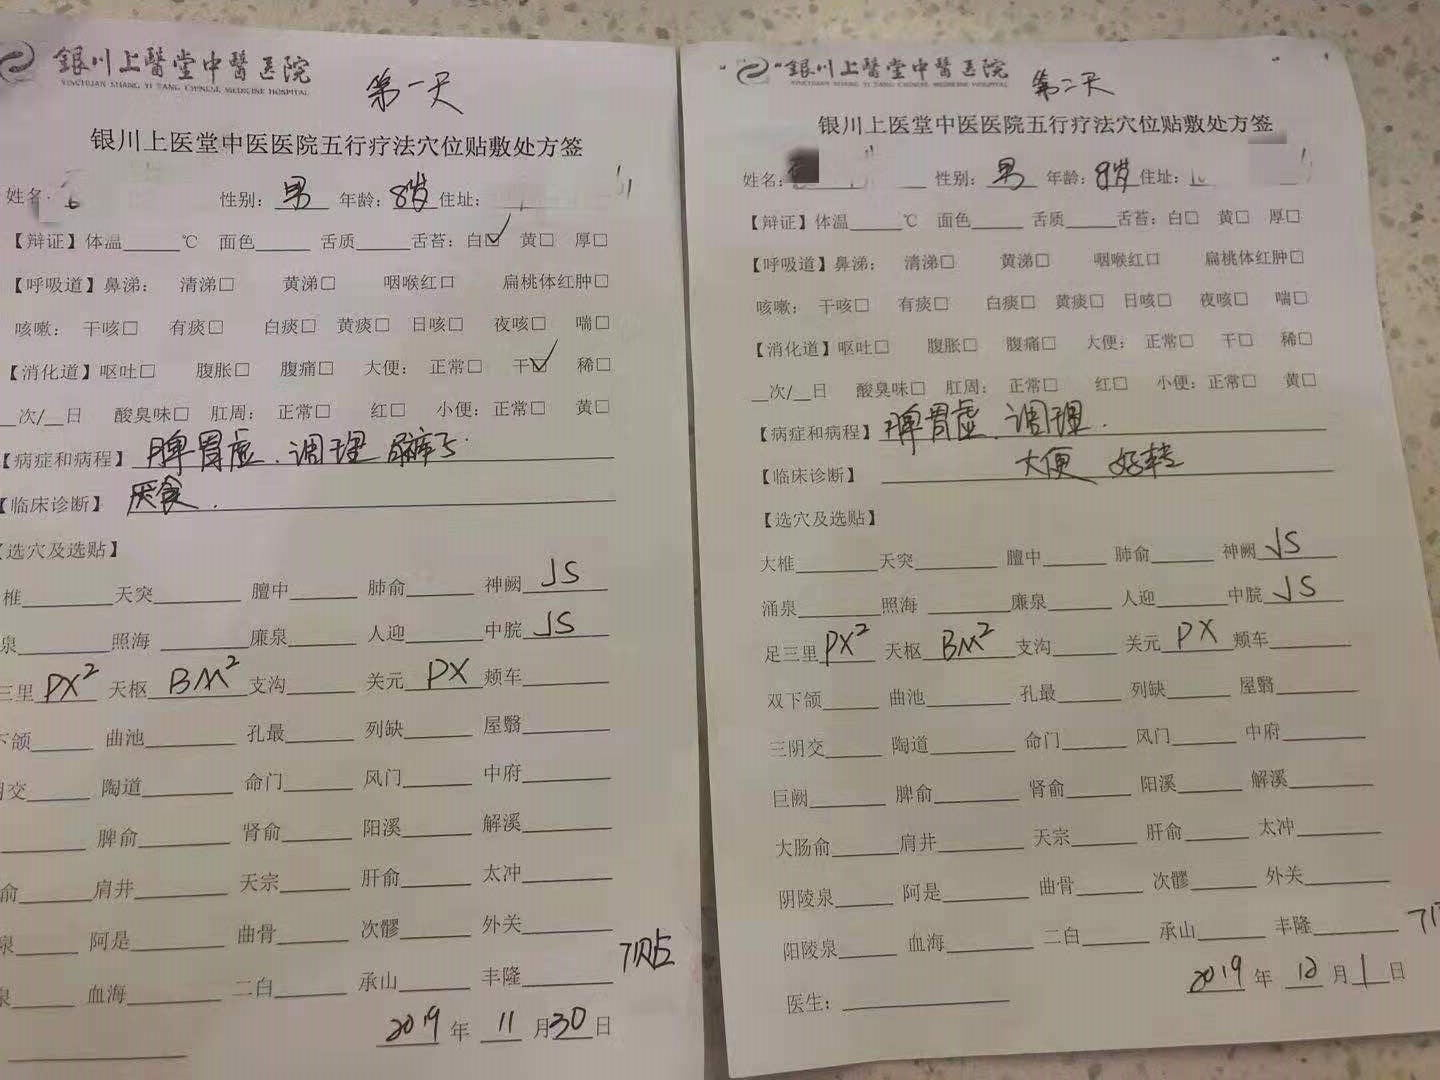 银川上醫堂中醫医院
YINCHUAN SHANG YI TANG CHINESE MEDICINE HOSPITAL
第一天
银川上医堂中医医院五行疗法穴位贴敷处方签
姓名: 性别: 男 年龄: 8岁 住址:
【辩证】体温______℃ 面色______ 舌质______舌苔: 白☑ 黄□ 厚□
【呼吸道】鼻涕: 清涕□ 黄涕□ 咽喉红□ 扁桃体红肿□
咳嗽: 干咳□ 有痰□ 白痰□ 黄痰□ 日咳□ 夜咳□ 喘□
【消化道】呕吐□ 腹胀□ 腹痛□ 大便: 正常□ 干☑ 稀□
__次/__日 酸臭味□ 肛周: 正常□ 红□ 小便: 正常□ 黄□
【病症和病程】脾胃虚.调理
【临床诊断】厌食.
【选穴及选贴】
椎______天突______ 膻中______ 肺俞______ 神阙 JS
泉______照海______ 廉泉______ 人迎______ 中脘 JS
三里 PX² 天枢 BM² 支沟______ 关元 PX 颊车______
下颌______ 曲池______ 孔最______ 列缺______ 屋翳______
交______ 陶道______ 命门______ 风门______ 中府______
______ 脾俞______ 肾俞______ 阳溪______ 解溪______
俞______ 肩井______ 天宗______ 肝俞______ 太冲______
泉______ 阿是______ 曲骨______ 次髎______ 外关______
泉______ 血海______ 二白______ 承山______ 丰隆______
7贴
2019 年 11 月 30 日
银川上醫堂中醫医院
YINCHUAN SHANG YI TANG CHINESE MEDICINE HOSPITAL
第二天
银川上医堂中医医院五行疗法穴位贴敷处方签
姓名: 性别: 男 年龄: 8岁 住址:
【辩证】体温______℃ 面色______ 舌质______舌苔: 白□ 黄□ 厚□
【呼吸道】鼻涕: 清涕□ 黄涕□ 咽喉红□ 扁桃体红肿□
咳嗽: 干咳□ 有痰□ 白痰□ 黄痰□ 日咳□ 夜咳□ 喘□
【消化道】呕吐□ 腹胀□ 腹痛□ 大便: 正常□ 干□ 稀□
__次/__日 酸臭味□ 肛周: 正常□ 红□ 小便: 正常□ 黄□
【病症和病程】脾胃虚.调理.
【临床诊断】 大便 好转
【选穴及选贴】
大椎______天突______ 膻中______ 肺俞______ 神阙 JS
涌泉______照海______ 廉泉______ 人迎______ 中脘 JS
足三里 PX² 天枢 BM² 支沟______ 关元 PX 颊车______
双下颌______ 曲池______ 孔最______ 列缺______ 屋翳______
三阴交______ 陶道______ 命门______ 风门______ 中府______
巨阙______ 脾俞______ 肾俞______ 阳溪______ 解溪______
大肠俞______肩井______ 天宗______ 肝俞______ 太冲______
阴陵泉______ 阿是______ 曲骨______ 次髎______ 外关______
阳陵泉______ 血海______ 二白______ 承山______ 丰隆______
7
2019 年 12 月 1 日
医生: ______